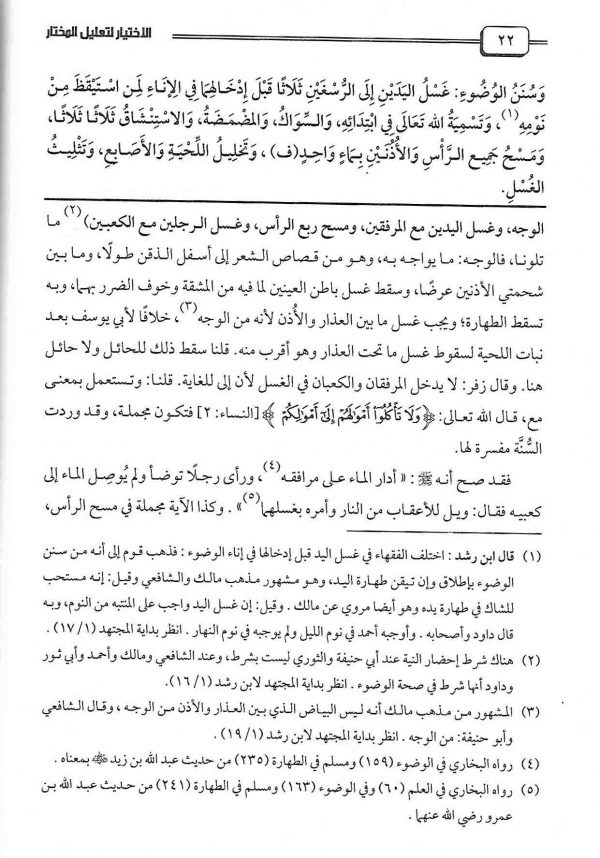 الاختيار لتعليل المختار
٢٢
وَسُنَنُ الوُضُوءِ: غَسْلُ اليَدَيْنِ إِلَى الرُّسْغَيْنِ ثَلَاثًا قَبْلَ إِدْخَالِهِمَا فِي الإِنَاءِ لِمَنِ اسْتَيْقَظَ مِنْ
نَوْمِهِ(١)، وَتَسْمِيَةُ الله تَعَالَى فِي ابْتِدَائِهِ، وَالسِّوَاكُ، وَالمَضْمَضَةُ، وَالاسْتِنْشَاقُ ثَلَاثًا ثَلَاثًا،
وَمَسْحُ جَمِيعِ الرَّأْسِ وَالأُذُنَيْنِ بِمَاءٍ وَاحِدٍ(ف)، وَتَخْلِيلُ اللِّحْيَةِ وَالأَصَابِعِ، وَتَثْلِيثُ
الغُسْلِ.
الوجه، وغسل اليدين مع المرفقين، ومسح ربع الرأس، وغسل الرجلين مع الكعبين)(٢) ما
تلونا، فالوجه: ما يواجه به، وهو من قصاص الشعر إلى أسفل الذقن طولًا، وما بين
شحمتي الأذنين عرضًا، وسقط غسل باطن العينين لما فيه من المشقة وخوف الضرر بهما، وبه
تسقط الطهارة؛ ويجب غسل ما بين العذار والأُذن لأنه من الوجه(٣)، خلافًا لأبي يوسف بعد
نبات اللحية لسقوط غسل ما تحت العذار وهو أقرب منه. قلنا سقط ذلك للحائل ولا حائل
هنا. وقال زفر: لا يدخل المرفقان والكعبان في الغسل لأن إلى للغاية. قلنا: وتستعمل بمعنى
مع، قال الله تعالى: ﴿وَلَا تَأْكُلُوٓا۟ أَمْوَٰلَهُمْ إِلَىٰٓ أَمْوَٰلِكُمْ﴾ [النساء: ٢] فتكون مجملة، وقد وردت
السُّنَّة مفسرة لها.
فقد صح أنه ﷺ: «أدار الماء على مرافقه(٤)، ورأى رجلًا توضأ ولم يُوصِل الماء إلى
كعبيه فقال: ويل للأعقاب من النار وأمره بغسلهما(٥)». وكذا الآية مجملة في مسح الرأس،
(١) قال ابن رشد : اختلف الفقهاء في غسل اليد قبل إدخالها في إناء الوضوء : فذهب قوم إلى أنه من سنن
الوضوء بإطلاق وإن تيقن طهارة اليد، وهو مشهور مذهب مالك والشافعي وقيل: إنه مستحب
للشاك في طهارة يده وهو أيضا مروي عن مالك . وقيل: إن غسل اليد واجب على المنتبه من النوم، وبه
قال داود وأصحابه . وأوجبه أحمد في نوم الليل ولم يوجبه في نوم النهار . انظر بداية المجتهد (١/ ١٧) .
(٢) هناك شرط إحضار النية عند أبي حنيفة والثوري ليست بشرط، وعند الشافعي ومالك وأحمد وأبي ثور
وداود أنها شرط في صحة الوضوء . انظر بداية المجتهد لابن رشد (١/ ١٦) .
(٣) المشهور من مذهب مالك أنه ليس البياض الذي بين العذار والأذن من الوجه ، وقال الشافعي
وأبو حنيفة: من الوجه . انظر بداية المجتهد لابن رشد (١/ ١٩) .
(٤) رواه البخاري في الوضوء (١٥٩) ومسلم في الطهارة (٢٣٥) من حديث عبد الله بن زيد ﷺ بمعناه .
(٥) رواه البخاري في العلم (٦٠) وفي الوضوء (١٦٣) ومسلم في الطهارة (٢٤١) من حديث عبد الله بن
عمرو رضي الله عنهما .